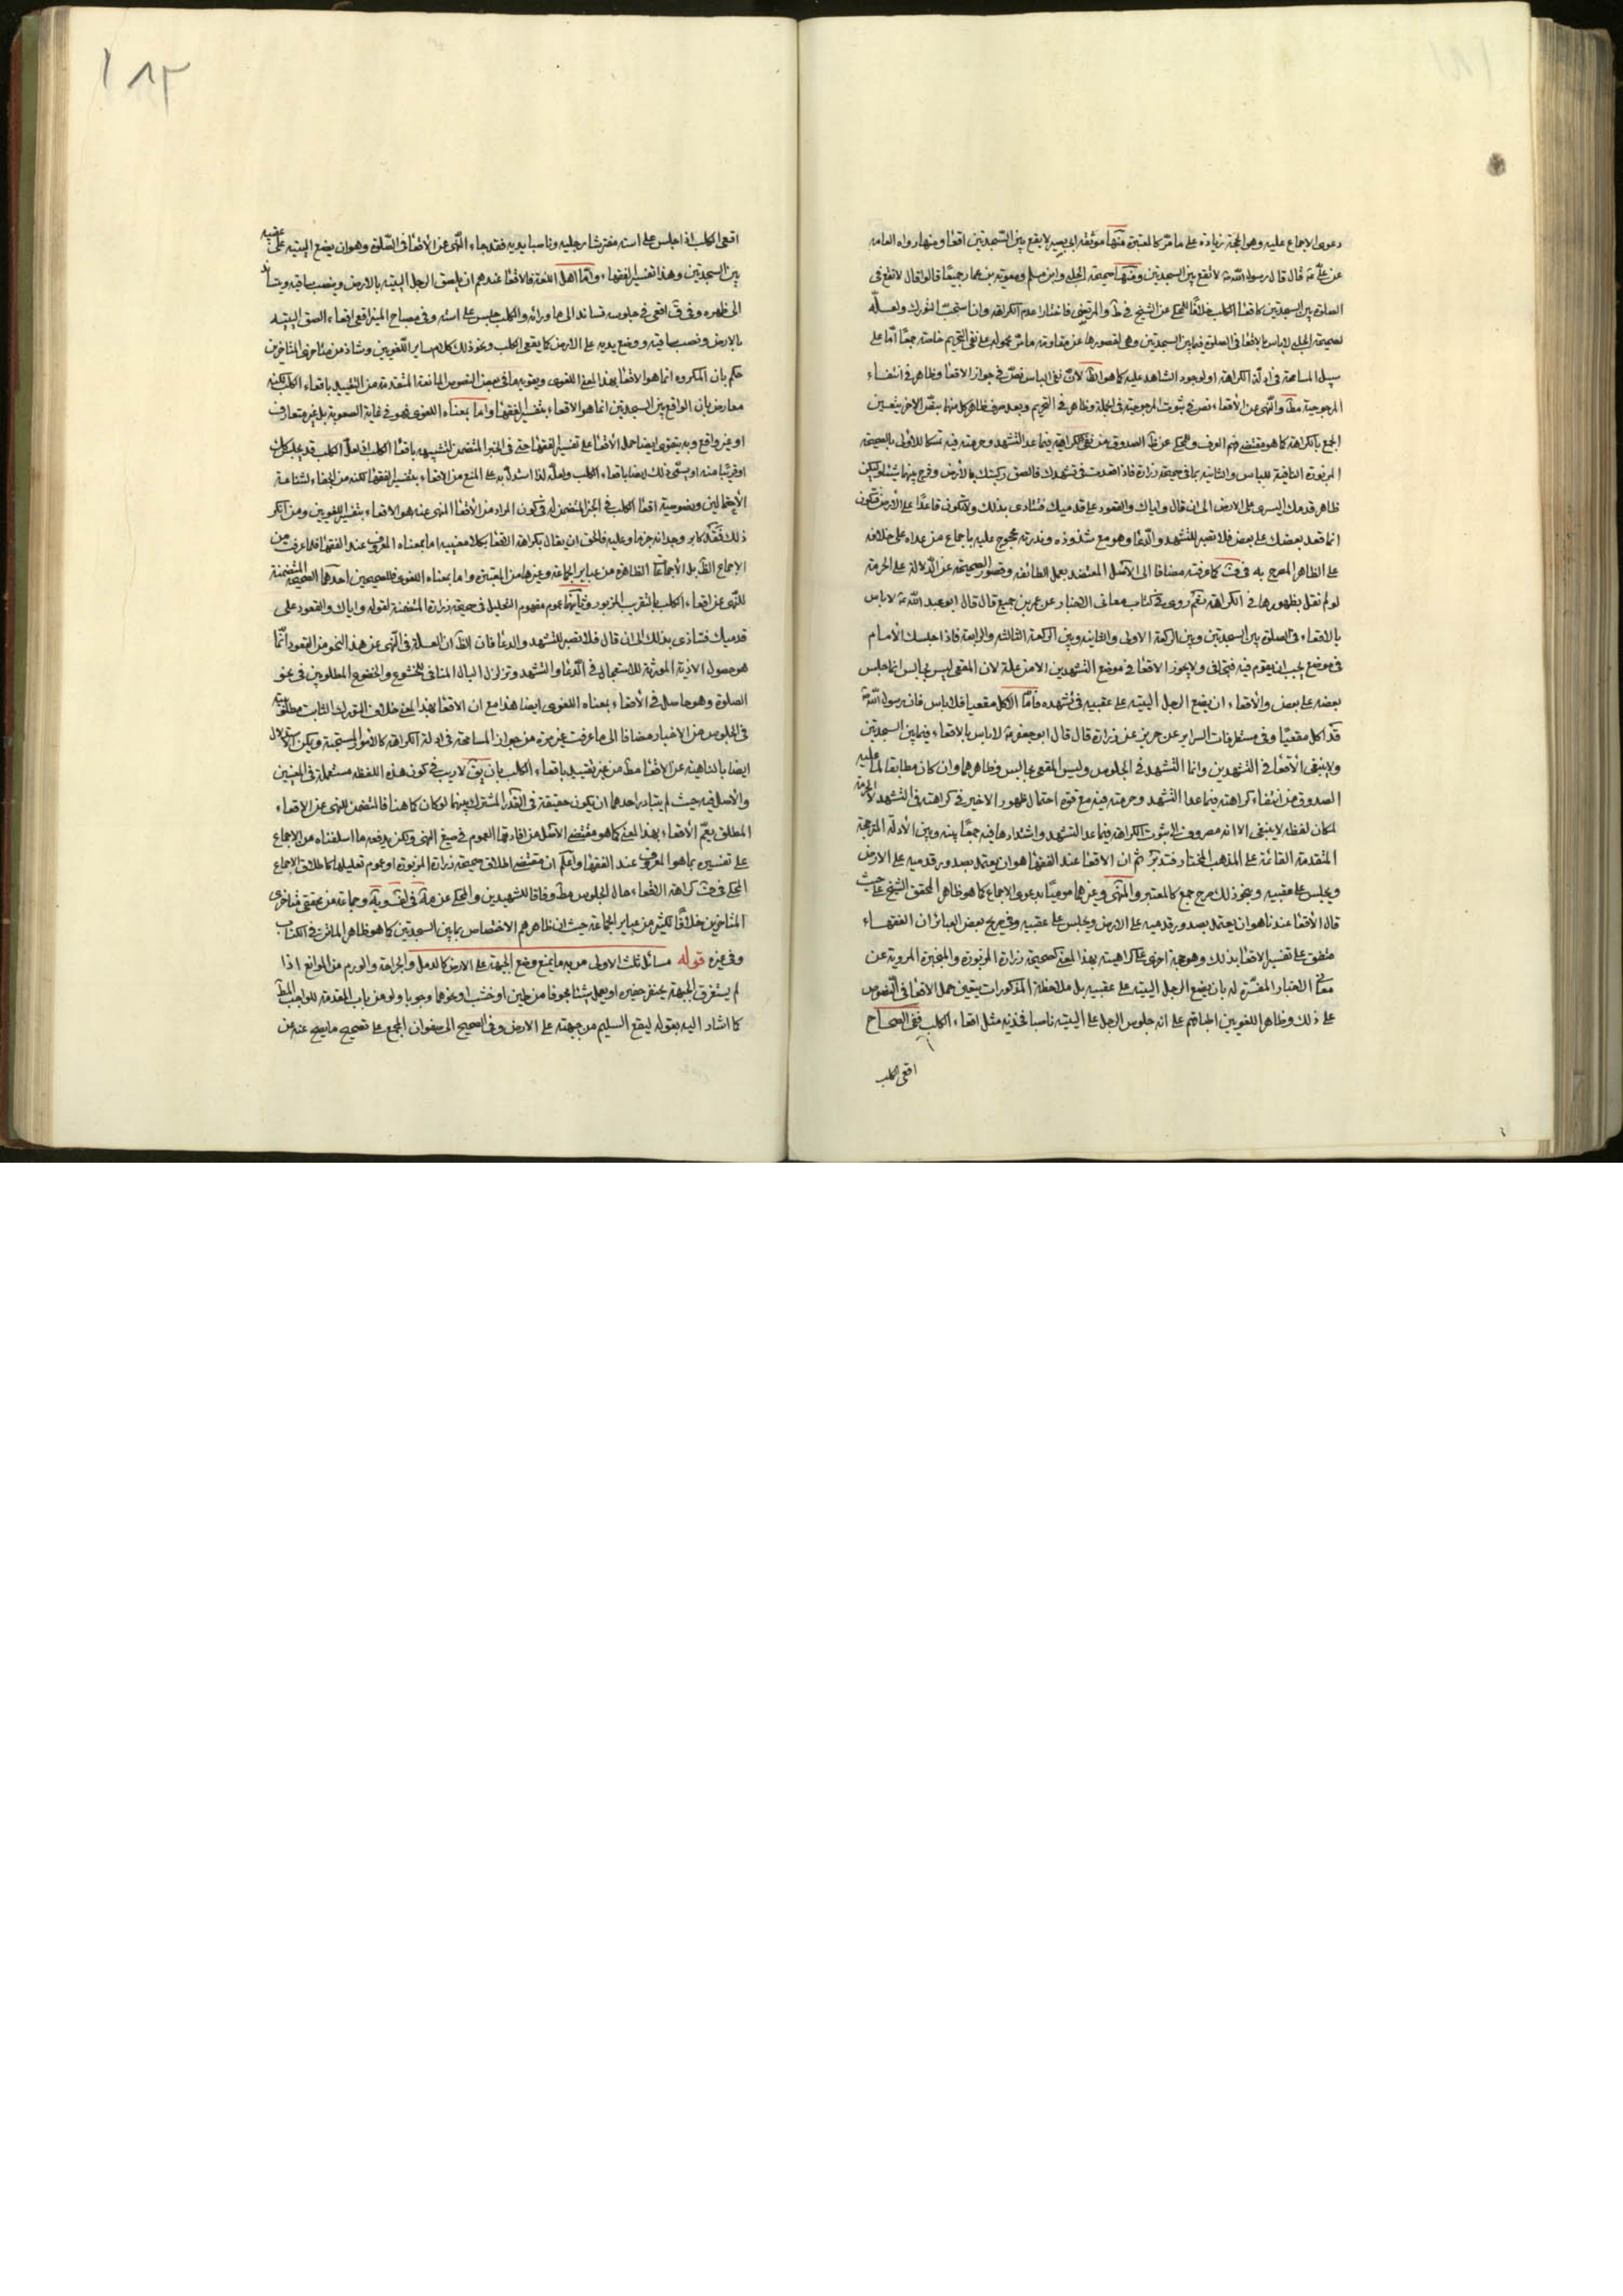 دعوى الاجماع عليه وهو الحجة زيادة على ما مر كالمعتبرة منها موثقة ابي بصير لا يقع بين السجدتين اقعاء ومنها رواه العامة
عن علي ع قال قال رسول الله ص لا تقع بين السجدتين ومنها صحيحة الحلبي وابن مسلم ومعوية بن عمار جميعا قالوا قال لا تقع في
الصلوة بين السجدتين كاقعاء الكلب خلافا للمحكي عن الشيخ في ط والمرتضى فاختارا عدم الكراهة وان استحب التورك ولعله
لصحيحة الحلبي لا باس بالاقعاء في الصلوة فيما بين السجدتين وهي لقصورها عن مقاومة ما مر محمولة على نفي التحريم خاصة جمعا اما على
سبيل المسامحة في ادلة الكراهة او لوجود الشاهد عليه كما هو الظ لان نفي الباس نص في جواز الاقعاء وظاهر في انتفاء
المرجوحية مط والنهي عن الاقعاء نص في ثبوت المرجوحية في الجملة وظاهر في التحريم وبعد صرف ظاهر كل منهما بنص الاخر يتعين
الجمع بالكراهة كما هو مقتضى فهم العرف والمحكي عن ظ الصدوق من نفي الكراهة فيما عدا التشهد وحرمته فيه تمسكا للاولى بالصحيحة
المزبورة النافية للباس والثانية بما في صحيحة زرارة فاذا قعدت في تشهدك فالصق ركبتيك بالارض وفرج بينهما شيئا وليكن
ظاهر قدمك اليسرى على الارض الى ان قال واياك والقعود على قدميك فتتاذى بذلك ولا تكون قاعدا على الارض فتكون
انما قعد بعضك على بعض فلا تصبر للتشهد والدعاء وهو مع شذوذه وندرته محجوج عليه باجماع من عداه على خلافه
على الظاهر المصرح به في كما عرفته مضافا الى الاصل المعتضد بعمل الطائفة وقصور الصحيحة عن الدلالة على الحرمة
لو لم نقل بظهورها في الكراهة نعم روى في كتاب معاني الاخبار عن عمرو بن جميع قال قال ابو عبد الله ع لا باس
بالاقعاء في الصلوة بين السجدتين وبين الركعة الاولى والثانية وبين الركعة الثالثة والرابعة فاذا اجلسك الامام
في موضع يجب ان يقوم فيه فتجافى ولا يجوز الاقعاء في موضع التشهدين الا من علة لان المقعي ليس بجالس انما جلس
بعضه على بعض والاقعاء ان يضع الرجل اليتيه على عقبيه في تشهده فاما الاكل مقعيا فلا باس فان رسول الله ص
قد اكل مقعيا وفي مستطرفات السراير عن حريز عن زرارة قال قال ابو جعفر ع لا باس بالاقعاء فيما بين السجدتين
ولا ينبغي الاقعاء في التشهدين وانما التشهد في الجلوس وليس المقعي بجالس وظاهرهما وان كان مطابقا لما عليه
الصدوق من انتفاء كراهته فيما عدا التشهد وحرمته فيه مع قوة احتمال ظهور الاخير في كراهته في التشهد لا الحرمة
لمكان لفظه لا ينبغي الا انه مصروف الى ثبوت الكراهة فيما عدا التشهد واشتدادها فيه جمعا بينه وبين الادلة المرجحة
المتقدمة القائمة على المذهب المختار فتدبر ثم ان الاقعاء عند الفقهاء هو ان يعتمد بصدور قدميه على الارض
ويجلس على عقبيه وبنحو ذلك صرح جمع كالمعتبر والمنتهى وغيرهما موميا بدعوى الاجماع كما هو ظاهر المحقق الشيخ علي حيث
قال الاقعاء عندنا هو ان يعتمد بصدور قدميه على الارض ويجلس على عقبيه وفي صريح بعض العبائر ان الفقهاء
متفق على تفسير الاقعاء بذلك وهو حجة اخرى على كراهيته بهذا المعنى كصحيحة زرارة المزبورة والمنجبرة المروية عن
معاني الاخبار المفسرة له بان يضع الرجل اليتيه على عقبيه بل ملاحظة المذكورات يتعين حمل الاقعاء في النصوص
على ذلك وظاهر اللغويين اطباقهم على انه جلوس الرجل على اليتيه ناصبا فخذيه مثل اقعاء الكلب ففي الصحاح
اقعى الكلب
١٨٣
اقعى الكلب اذا جلس على استه مفترشا رجليه وناصبا يديه فقد جاء النهي عن الاقعاء في الصلوة وهو ان يضع اليتيه على عقبيه
بين السجدتين وهذا تفسير الفقهاء واما اهل اللغة فالاقعاء عندهم ان يلصق الرجل اليتيه بالارض وينصب ساقيه ويتساند
الى ظهره وفي ق اقعى في جلوسه تساند الى ما ورائه والكلب جلس على استه وفي مصباح المنير اقعى اقعاء الصق اليتيه
بالارض ونصب ساقيه ووضع يديه على الارض كما يقعي الكلب ونحو ذلك كلام ساير اللغويين وشاذ من متاخري المتاخرين
حكم بان المكروه انما هو الاقعاء بهذا المعنى اللغوي ويقويه ما في بعض النصوص المانعة المتقدمة من التقييد باقعاء الكلب لكنه
معارض بان الواقع بين السجدتين انما هو الاقعاء بتفسير الفقهاء واما بمعناه اللغوي فهو في غاية الصعوبة بل غير متعارف
او غير واقع وبه يتقوى ايضا حمل الاقعاء على تفسير الفقهاء حتى في الخبر المتضمن لتشبيهه باقعاء الكلب فلعل الكلب قد يجلس كك
او قريبا منه او يسمى ذلك ايضا باقعاء الكلب ولعله لذا استدل به على المنع من الاقعاء بتفسير الفقهاء لكنه من الخفاء لشناعة
الاحتمالين وخصوصية اقعاء الكلب في الخبر المتضمن له في كون المراد من الاقعاء المنهي عنه هو الاقعاء بتفسير اللغويين ومن انكر
ذلك فقد كابر وجدانه جزما وعليه فالحق ان يقال بكراهة الاقعاء بكلا معنييه اما بمعناه المعروف عند الفقهاء فلما عرفت من
الاجماع الظ بل الاجماعات الظاهرة من عباير الجماعة وغيرها من المعتبرة واما بمعناه اللغوي فللصحيحين احدهما الصحيحة المتضمنة
للنهي عن اقعاء الكلب بالتقريب المزبور وثانيهما عموم مفهوم التعليل في صحيحة زرارة المتضمنة لقوله واياك والقعود على
قدميك فتتاذى بذلك الى ان قال فلا تصبر للتشهد والدعاء فان الظ ان العلة في النهي عن هذا النحو من القعود انما
هو حصول الاذية المورثة للاستعجال في الدعاء والتشهد وتزلزل البال المنافي للخشوع والخضوع المطلوبين في نحو
الصلوة وهو حاصل في الاقعاء بمعناه اللغوي ايضا هذا مع ان الاقعاء بهذا المعنى خلاف التورك الثابت مطلوبيته
في الجلوس من الاخبار مضافا الى ما عرفت غير مرة من جواز المسامحة في ادلة الكراهة كالامور المستحبة ويمكن الاستدلال
ايضا بالناهية عن الاقعاء مط من غير تقييد باقعاء الكلب بان يق لا ريب في كون هذه اللفظة مستعملة في المعنيين
والاصل فيه حيث لم يتبادر احدهما ان يكون حقيقة في القدر المشترك بينهما لو كان كما هنا فالمتضمن للنهي عن الاقعاء
المطلق يعم الاقعاء بهذا المعنى كما هو مقتضى الاصل من افادتها العموم في صيغ النهي ولكن يدفعه ما اسلفناه من الاجماع
على تفسيره بما هو المعروف عند الفقهاء واعلم ان مقتضى اطلاق صحيحة زرارة المزبورة وعموم تعليلها كاطلاق الاجماع
المحكي في كراهة الاقعاء حال الجلوس مط وفاقا للشهيدين والمحكي عن وجماعة من محققي متاخري
المتاخرين خلافا لكثير من عباير الجماعة حيث ان ظاهرهم الاختصاص بما بين السجدتين كما هو ظاهر الماتن في الكتاب
وفي غيره قوله مسائل ثلث الاولى من به ما يمنع وضع الجبهة على الارض كالدمل والجراحة والورم من الموانع اذا
لم يستغرق الجبهة يحتفر حفيرة او يعمل شيئا مجوفا من طين او خشب او نحوها وجوبا ولو من باب المقدمة للواجب المط
كما اشار اليه بقوله ليقع السليم من جبهته على الارض وفي الصحيح الى صفوان المجمع على تصحيح ما يصح عنه عن